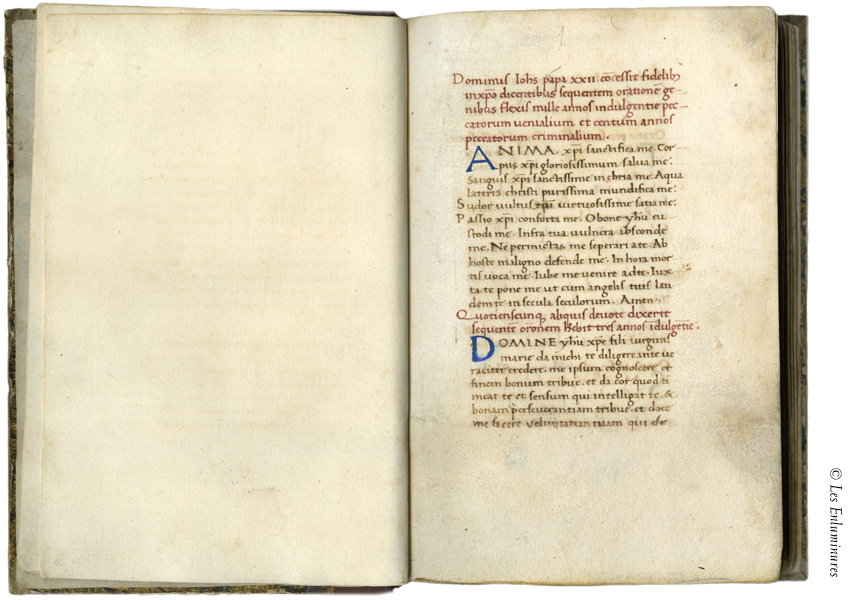 Dominus Iohs papa xxii cōcessit fidelib;
in xp̄o dicentibus sequentem orationē ge-
nibus flexis mille annos indulgentie pec-
catorum uenialium et centum annos
peccatorum criminalium.
ANIMA xp̄i sanctifica me. Cor
pus xp̄i gloriosissimum salua me:
Sanguis xp̄i sanctissime inebria me. Aqua
lateris christi purissima mundifica me:
Sudor uultus xp̄i uirtuosissime satia me:
Passio xp̄i conforta me. O bone yh̄u cu
stodi me. Infra tua uulnera absconde
me. Ne permictas me seperari a te. Ab
hoste maligno defende me. In hora mor
tis uoca me. Iube me uenire ad te. Iux
ta te pone me ut cum angelis tuis lau
dem te in secula seculorum. Amen.
Quotienscunq; aliquis deuote dixerit
sequentē oronem h̄ebit tres annos īdulgētie.
DOMINE yh̄u xp̄e fili uirginis
marie da michi te diligere ante ue
raciter credere. me ipsum cognoscere et
finem bonum tribue. et da cor quod ti
meat te et sensum qui intelligat te. &
bonam perseuerantiam tribue. et doce
me facere voluntatem tuam quia
© Les Enluminures